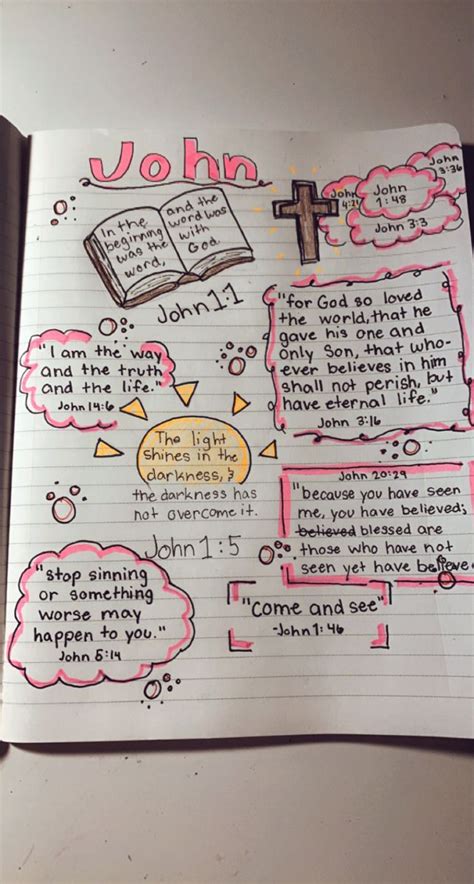 John
In the
beginning
was the
word,
and the
word was
with
God.
John 1:1
John
4:21
John
1:48
John
3:36
John 3:3
"for God so loved
the world, that he
gave his one and
only Son, that who-
ever believes in him
shall not perish, but
have eternal life."
John 3:16
"I am the way
and the truth
and the life."
John 14:6
The light
shines in the
darkness, &
the darkness has
not overcome it.
John 1:5
John 20:29
"because you have seen
me, you have believed;
believed blessed are
those who have not
seen yet have believe
"stop sinning
or something
worse may
happen to you."
John 5:14
"Come and see"
-John 1:46